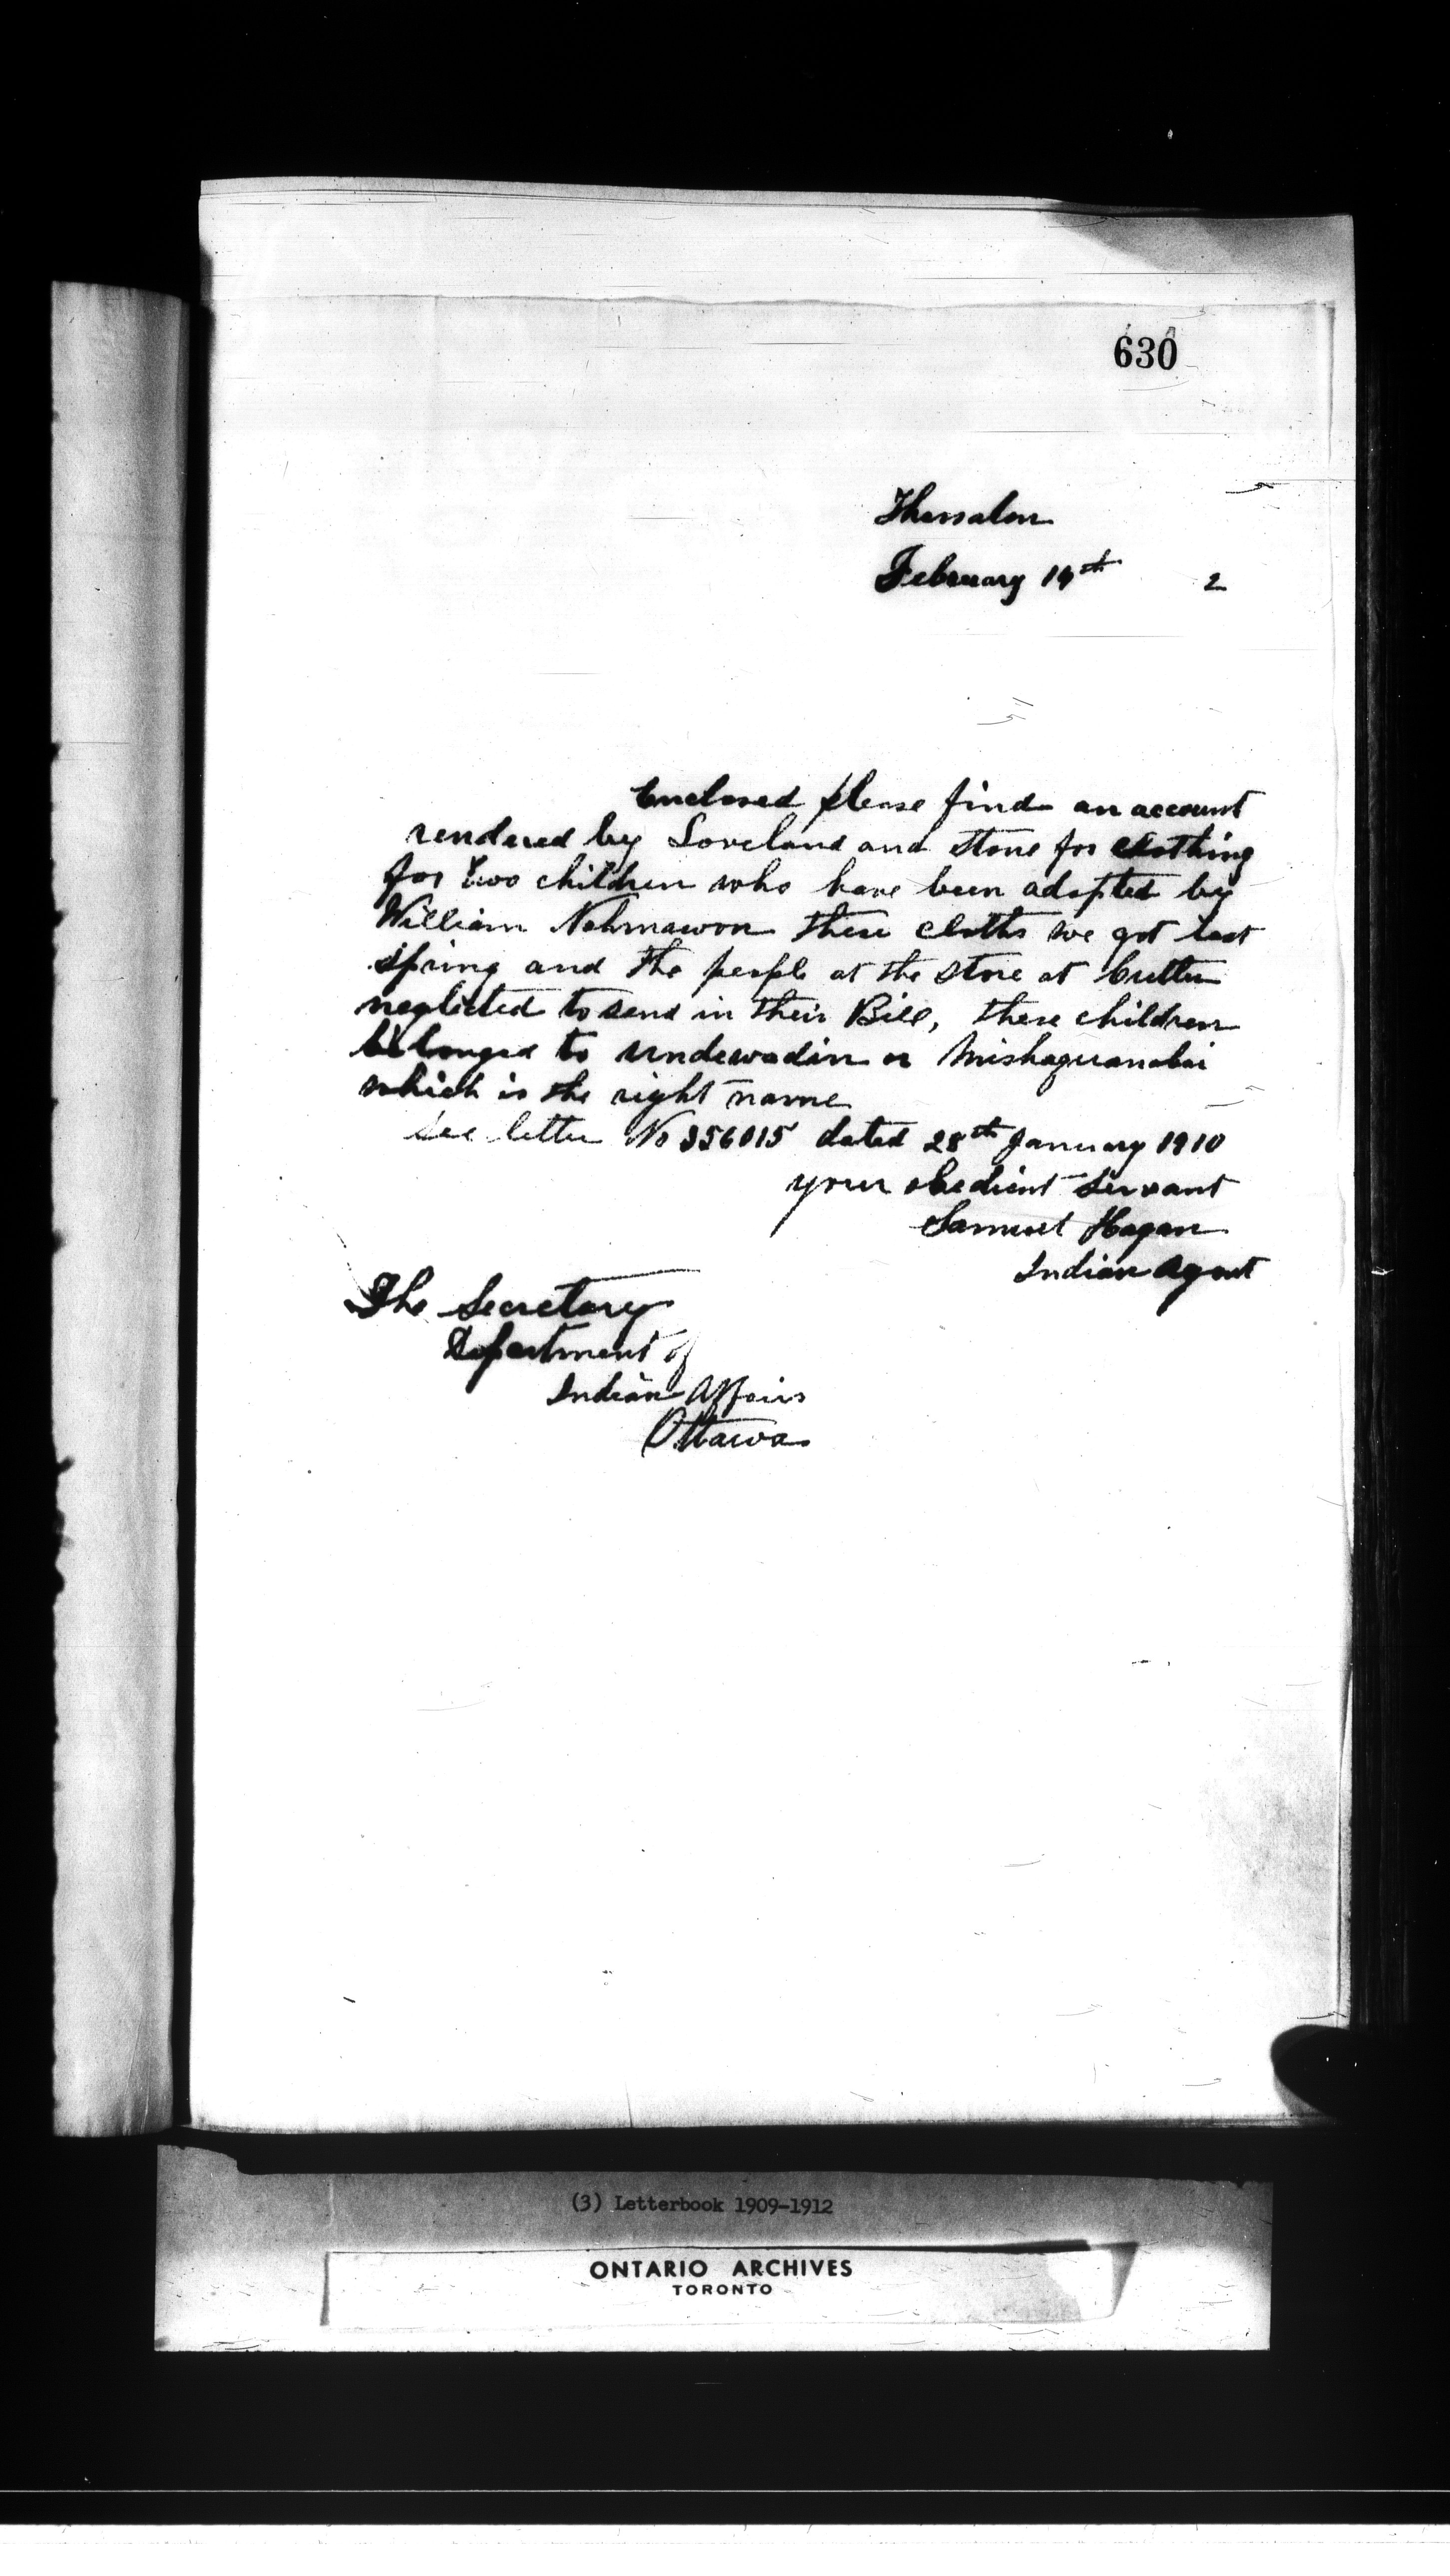 630
Thessalon
February 14th 2
Enclosed please find an account
rendered by Loveland and Stone for Clothing
for two children who have been adopted by
William Nahmawon these cloths we got last
spring and the people at the store at Cutler
neglected to send in their Bill, these children
belonged to Undewadin or Mishaquanabai
which is the right name
See letter No 356015 dated 28th January 1910
your obedient servant
Samuel Hagan
Indian Agent
The Secretary
Department of
Indian Affairs
Ottawa
(3) Letterbook 1909-1912
ONTARIO ARCHIVES
TORONTO